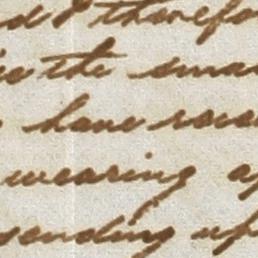 d I therefo
the sma
have rece
wearing a
sending up